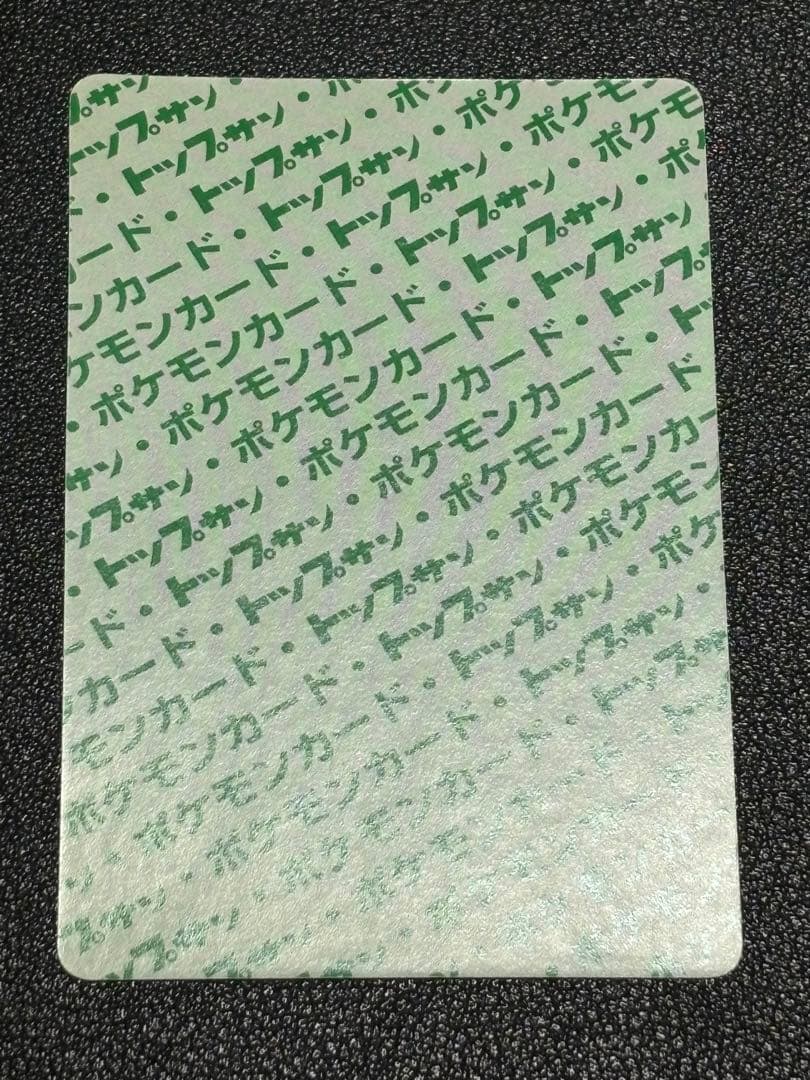 プサン
トップサン・
・トップサン・ポ
ード・トップサン・ポ
ンカード・トップサン・ポケ
ケモンカード・トップサン・ポケモ
・ポケモンカード・トップサン・ポケモ
サン・ポケモンカード・トップサン・ポ
ップサン・ポケモンカード・トップサン
・トップサン・ポケモンカード・トップ
ード・トップサン・ポケモンカード・ト
ンカード・トップサン・ポケモンカード
モンカード・トップサン・ポケモンカー
ポケモンカード・トップサン・ポケモン
・ポケモンカード・トップサン・ポケ
プサン・ポケモンカード・トップサン・
トップサン・ポケモンカード・トップサ
トップサン・ポケモ